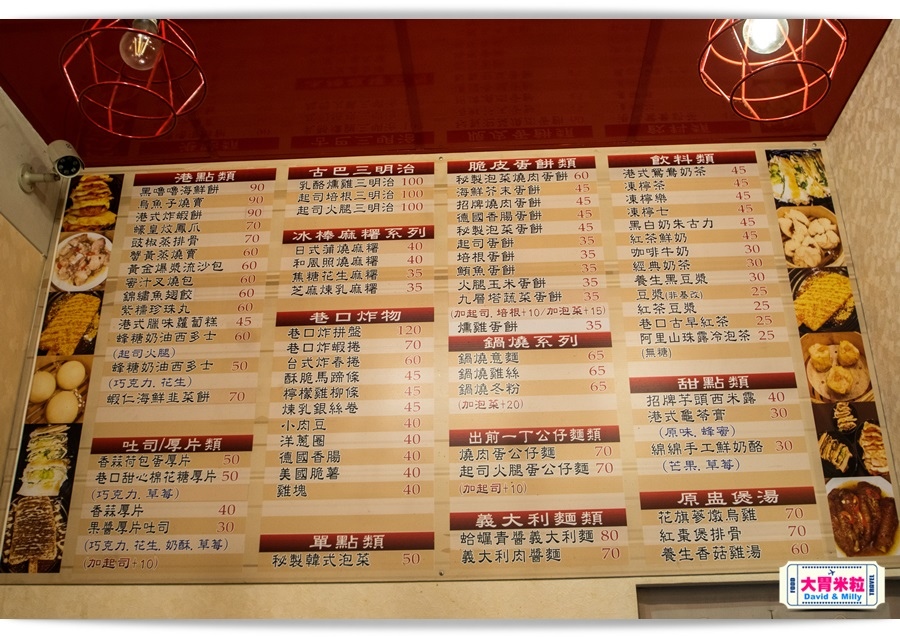 港點類
黑嚕嚕海鮮餅 90
烏魚子燒賣 90
港式炸蝦餅 90
蠔皇炆鳳爪 70
豉椒蒸排骨 70
蟹黃蒸燒賣 60
黃金爆漿流沙包 60
蜜汁叉燒包 60
錦繡魚翅餃 60
紫糯珍珠丸 60
港式臘味蘿蔔糕 45
蜂糖奶油西多士 60
(起司火腿)
蜂糖奶油西多士 50
(巧克力, 花生)
蝦仁海鮮韭菜餅 70
吐司/厚片類
香蒜荷包蛋厚片 50
巷口甜心棉花糖厚片 50
(巧克力, 草莓)
香蒜厚片 40
果醬厚片吐司 30
(巧克力, 花生, 奶酥, 草莓)
(加起司+10)
古巴三明治
乳酪燻雞三明治 100
起司培根三明治 100
起司火腿三明治 100
冰棒麻糬系列
日式蒲燒麻糬 40
和風照燒麻糬 40
焦糖花生麻糬 35
芝麻煉乳麻糬 35
巷口炸物
巷口炸拼盤 120
巷口炸蝦捲 70
台式炸春捲 60
酥脆馬蹄條 45
檸檬雞柳條 45
煉乳銀絲卷 45
小肉豆 40
洋蔥圈 40
德國香腸 40
美國脆薯 40
雞塊 40
單點類
秘製韓式泡菜 50
脆皮蛋餅類
秘製泡菜燒肉蛋餅 60
海鮮芥末蛋餅 45
招牌燒肉蛋餅 45
德國香腸蛋餅 45
秘製泡菜蛋餅 45
起司蛋餅 35
培根蛋餅 35
鮪魚蛋餅 35
火腿玉米蛋餅 35
九層塔蔬菜蛋餅 35
(加起司, 培根+10/加泡菜+15)
燻雞蛋餅 35
鍋燒系列
鍋燒意麵 65
鍋燒雞絲 65
鍋燒冬粉 65
(加泡菜+20)
出前一丁公仔麵類
燒肉蛋公仔麵 70
起司火腿蛋公仔麵 70
(加起司+10)
義大利麵類
蛤蠣青醬義大利麵 80
義大利肉醬麵 70
飲料類
港式鴛鴦奶茶 45
凍檸茶 45
凍檸樂 45
凍檸七 45
黑白奶朱古力 45
紅茶鮮奶 45
咖啡牛奶 30
經典奶茶 30
養生黑豆漿 30
豆漿(非基改) 25
紅茶豆漿 25
巷口古早紅茶 25
阿里山珠露冷泡茶 25
(無糖)
甜點類
招牌芋頭西米露 40
港式龜苓膏 30
(原味, 蜂蜜)
綿綿手工鮮奶酪 30
(芒果, 草莓)
原盅煲湯
花旗蔘燉烏雞 70
紅棗煲排骨 70
養生香菇雞湯 60
FOOD
大胃米粒
David & Milly
TRAVEL